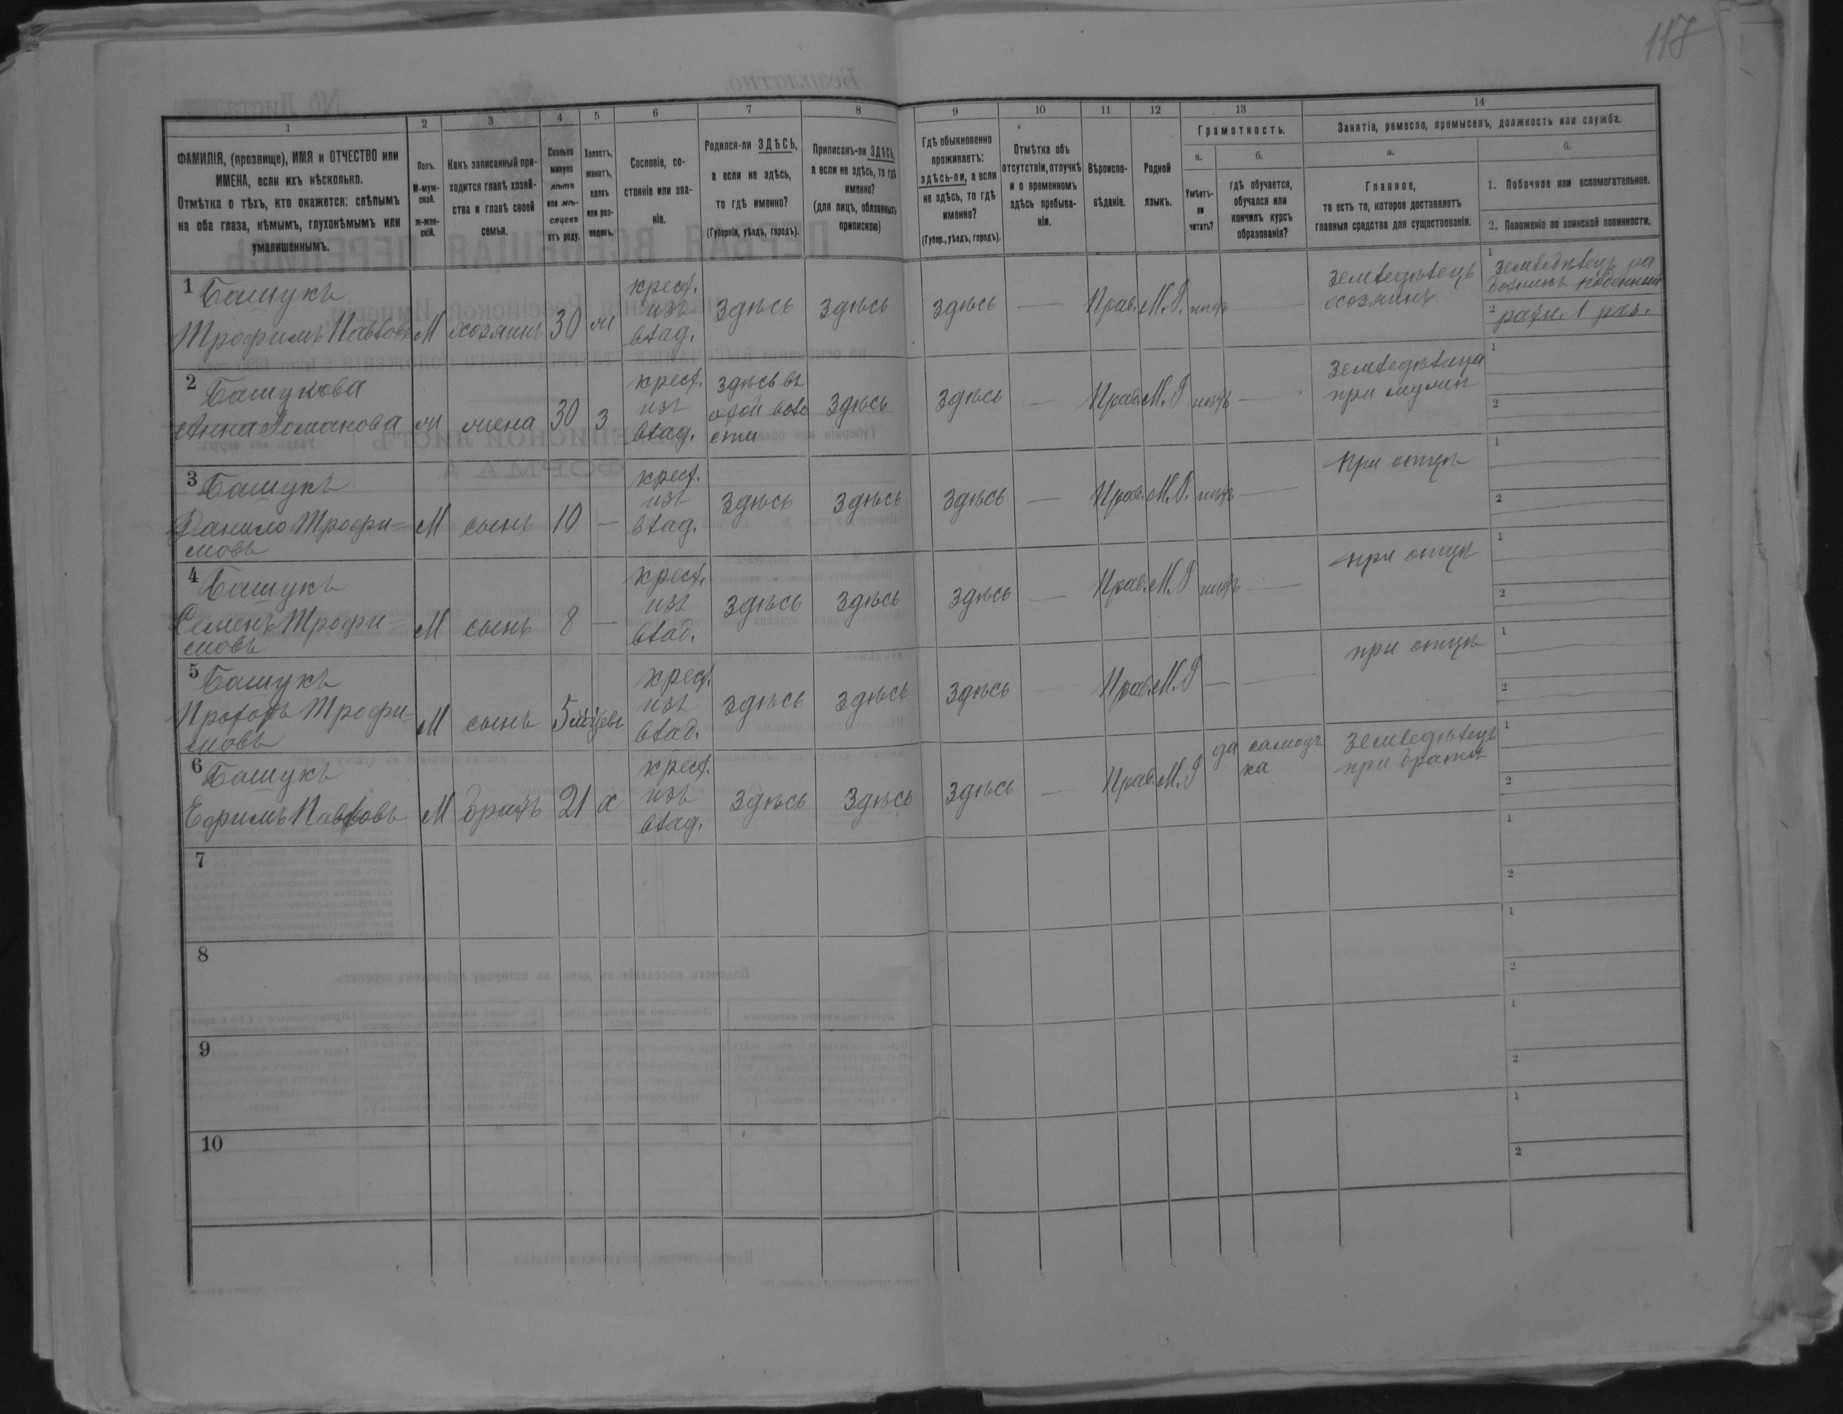 118
1
2
3
4
5
6
7
8
9
10
11
12
13
14
ФАМИЛІЯ, (прозвище), ИМЯ и ОТЧЕСТВО или
ИМЕНА, если ихъ нѣсколько.
Отмѣтка о тѣхъ, кто окажется: слѣпымъ
на оба глаза, нѣмымъ, глухонѣмымъ или
умалишеннымъ.
Полъ.
М-муж-
ской.
Ж-жен-
скій.
Какъ записанный при-
ходится главѣ хозяй-
ства и главѣ своей
семьи.
Сколько
минуло
лѣтъ
или мѣ-
сяцевъ
отъ роду.
Холостъ,
женатъ,
вдовъ
или раз-
веденъ.
Сословіе, со-
стояніе или зва-
ніе.
Родился-ли ЗДѢСЬ,
а если не здѣсь,
то гдѣ именно?
(Губернія, уѣздъ, городъ).
Приписанъ-ли ЗДѢСЬ,
а если не здѣсь, то гдѣ
именно?
(для лицъ, обязанныхъ
припискою)
Гдѣ обыкновенно
проживаетъ:
здѣсь-ли, а если
не здѣсь, то гдѣ
именно?
(Губер., уѣздъ, городъ).
Отмѣтка объ
отсутствіи, отлучкѣ
и о временномъ
здѣсь пребыва-
ніи.
Вѣроиспо-
вѣданіе.
Родной
языкъ.
Грамотность.
а.
Умѣетъ-
ли
читать?
б.
гдѣ обучается,
обучался или
кончилъ курсъ
образованія?
Занятіе, ремесло, промыселъ, должность или служба.
а.
Главное,
то есть то, которое доставляетъ
главныя средства для существованія.
б.
1. Побочное или вспомогательное.
2. Положеніе по воинской повинности.
1 Башукъ
Трофимъ Павловъ М хозяинъ 30 ж крест. изъ влад. здѣсь здѣсь здѣсь — Прав. М.Р. нѣтъ — земледѣлецъ хозяинъ
1 земледѣлецъ
2 ратн. 1 раз.
2 Башукова
Анна Романова ж жена 30 з крест. изъ влад. здѣсь въ этой воло сти здѣсь здѣсь — Прав. М.Р нѣтъ — земледѣлица при мужѣ
1
2
3 Башукъ
Данило Трофи=
мовъ М сынъ 10 — крест. изъ влад. здѣсь здѣсь здѣсь — Прав. М.Р. нѣтъ — при отцѣ
1
2
4 Башукъ
Семенъ Трофи=
мовъ М сынъ 8 — крест. изъ влад. здѣсь здѣсь здѣсь — Прав. М.Р нѣтъ — при отцѣ
1
2
5 Башукъ
Прохоръ Трофи=
мовъ М сынъ 5 крест. изъ влад. здѣсь здѣсь здѣсь — Прав. М.Р — — при отцѣ
1
2
6 Башукъ
Ефимъ Павловъ М братъ 21 х крест. изъ влад. здѣсь здѣсь здѣсь — Прав. М.Р да самоуч ка земледѣлецъ при братѣ
1
2
7
1
2
8
1
2
9
1
2
10
1
2